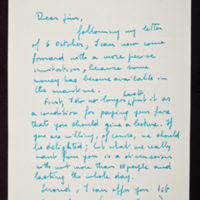 Dear Jim,
following my letter
of 6 October, I can now come
forward with a more precise
invitation, because some
money has become available in
the meantime.
First, I do no longer put it as
a condition for paying your fare
that you should give a lecture. If
you are willing, of course, we should
be delighted; but what we really
want from you is a discussion
with not more than people and
lasting the whole day.
Second, I can offer you 1st